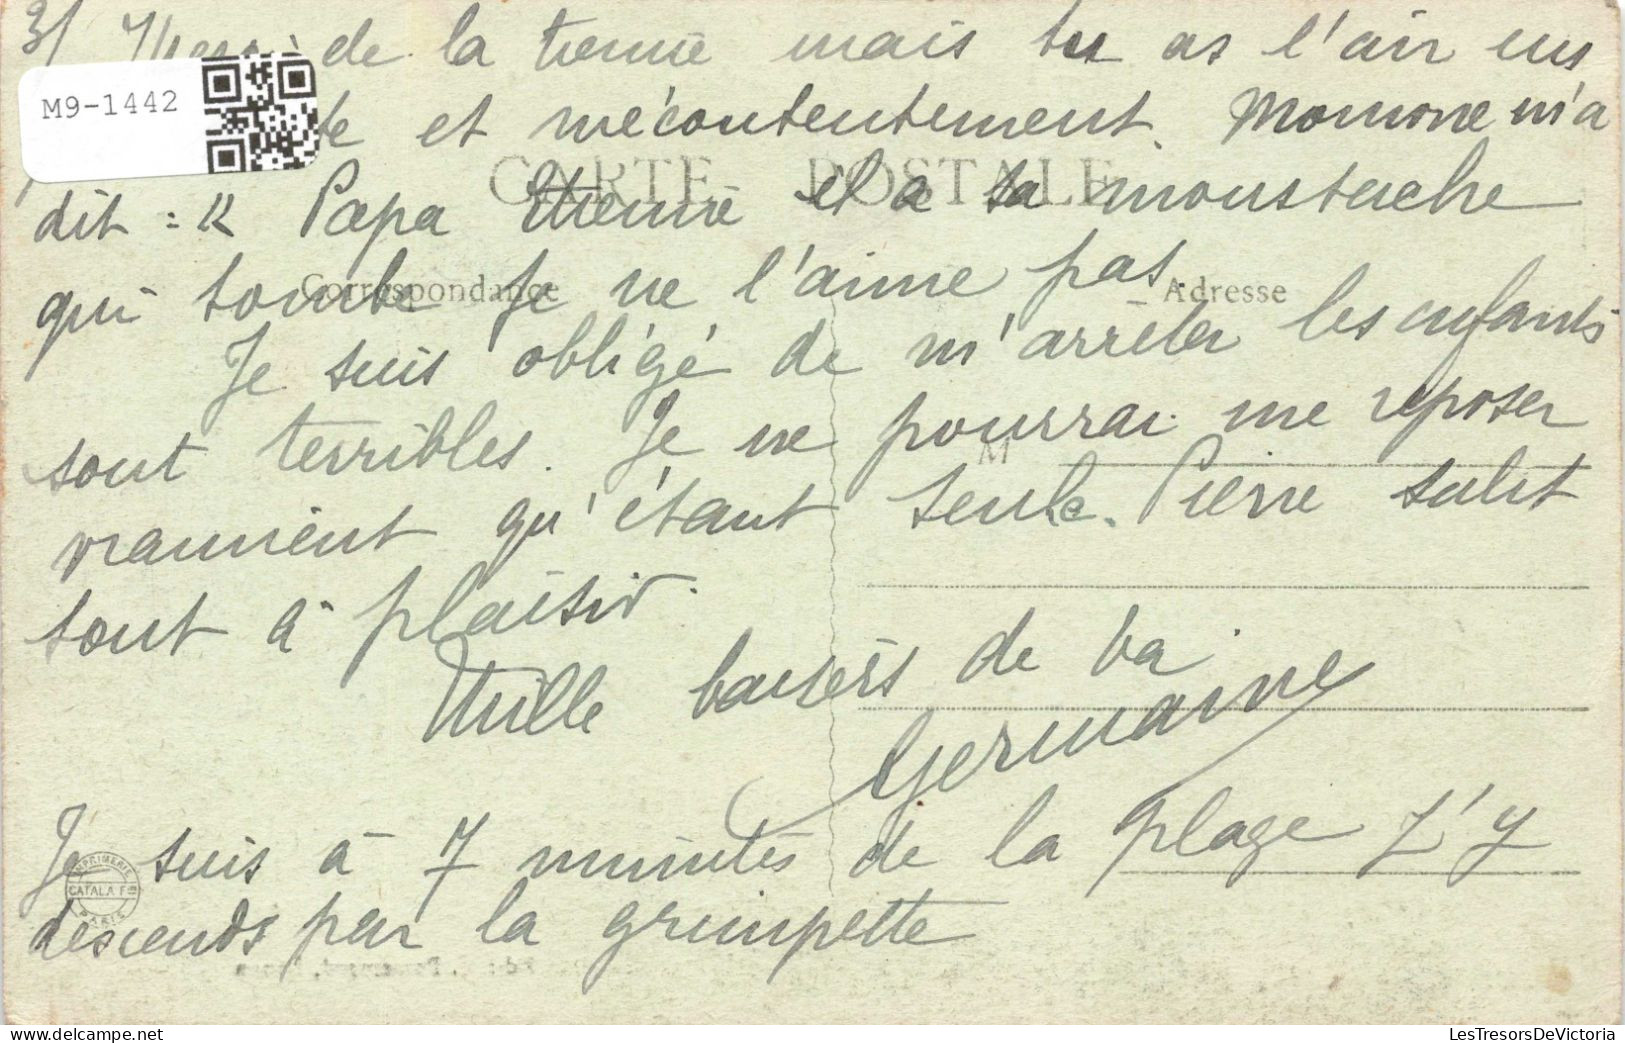 3/ Merci de la tienne mais tu as l'air
M9-1442
te et mécontentement. Momone m'a
CARTE POSTALE
dit : « Papa et a sa moustache
qui tombe Je ne l'aime pas.
Correspondance
Adresse
Je suis obligé de m'arrêter les enfants
sont terribles. Je ne pourrai me reposer
M
vraiment qu'étant seule. Pierre salit
tout à plaisir.
Mille baisers de ta
Germaine
Je suis à 7 minutes de la plage J'y
IMPRIMERIE
CATALA F
PARIS
descends par la grimpette
LesTresorsDeVictoria